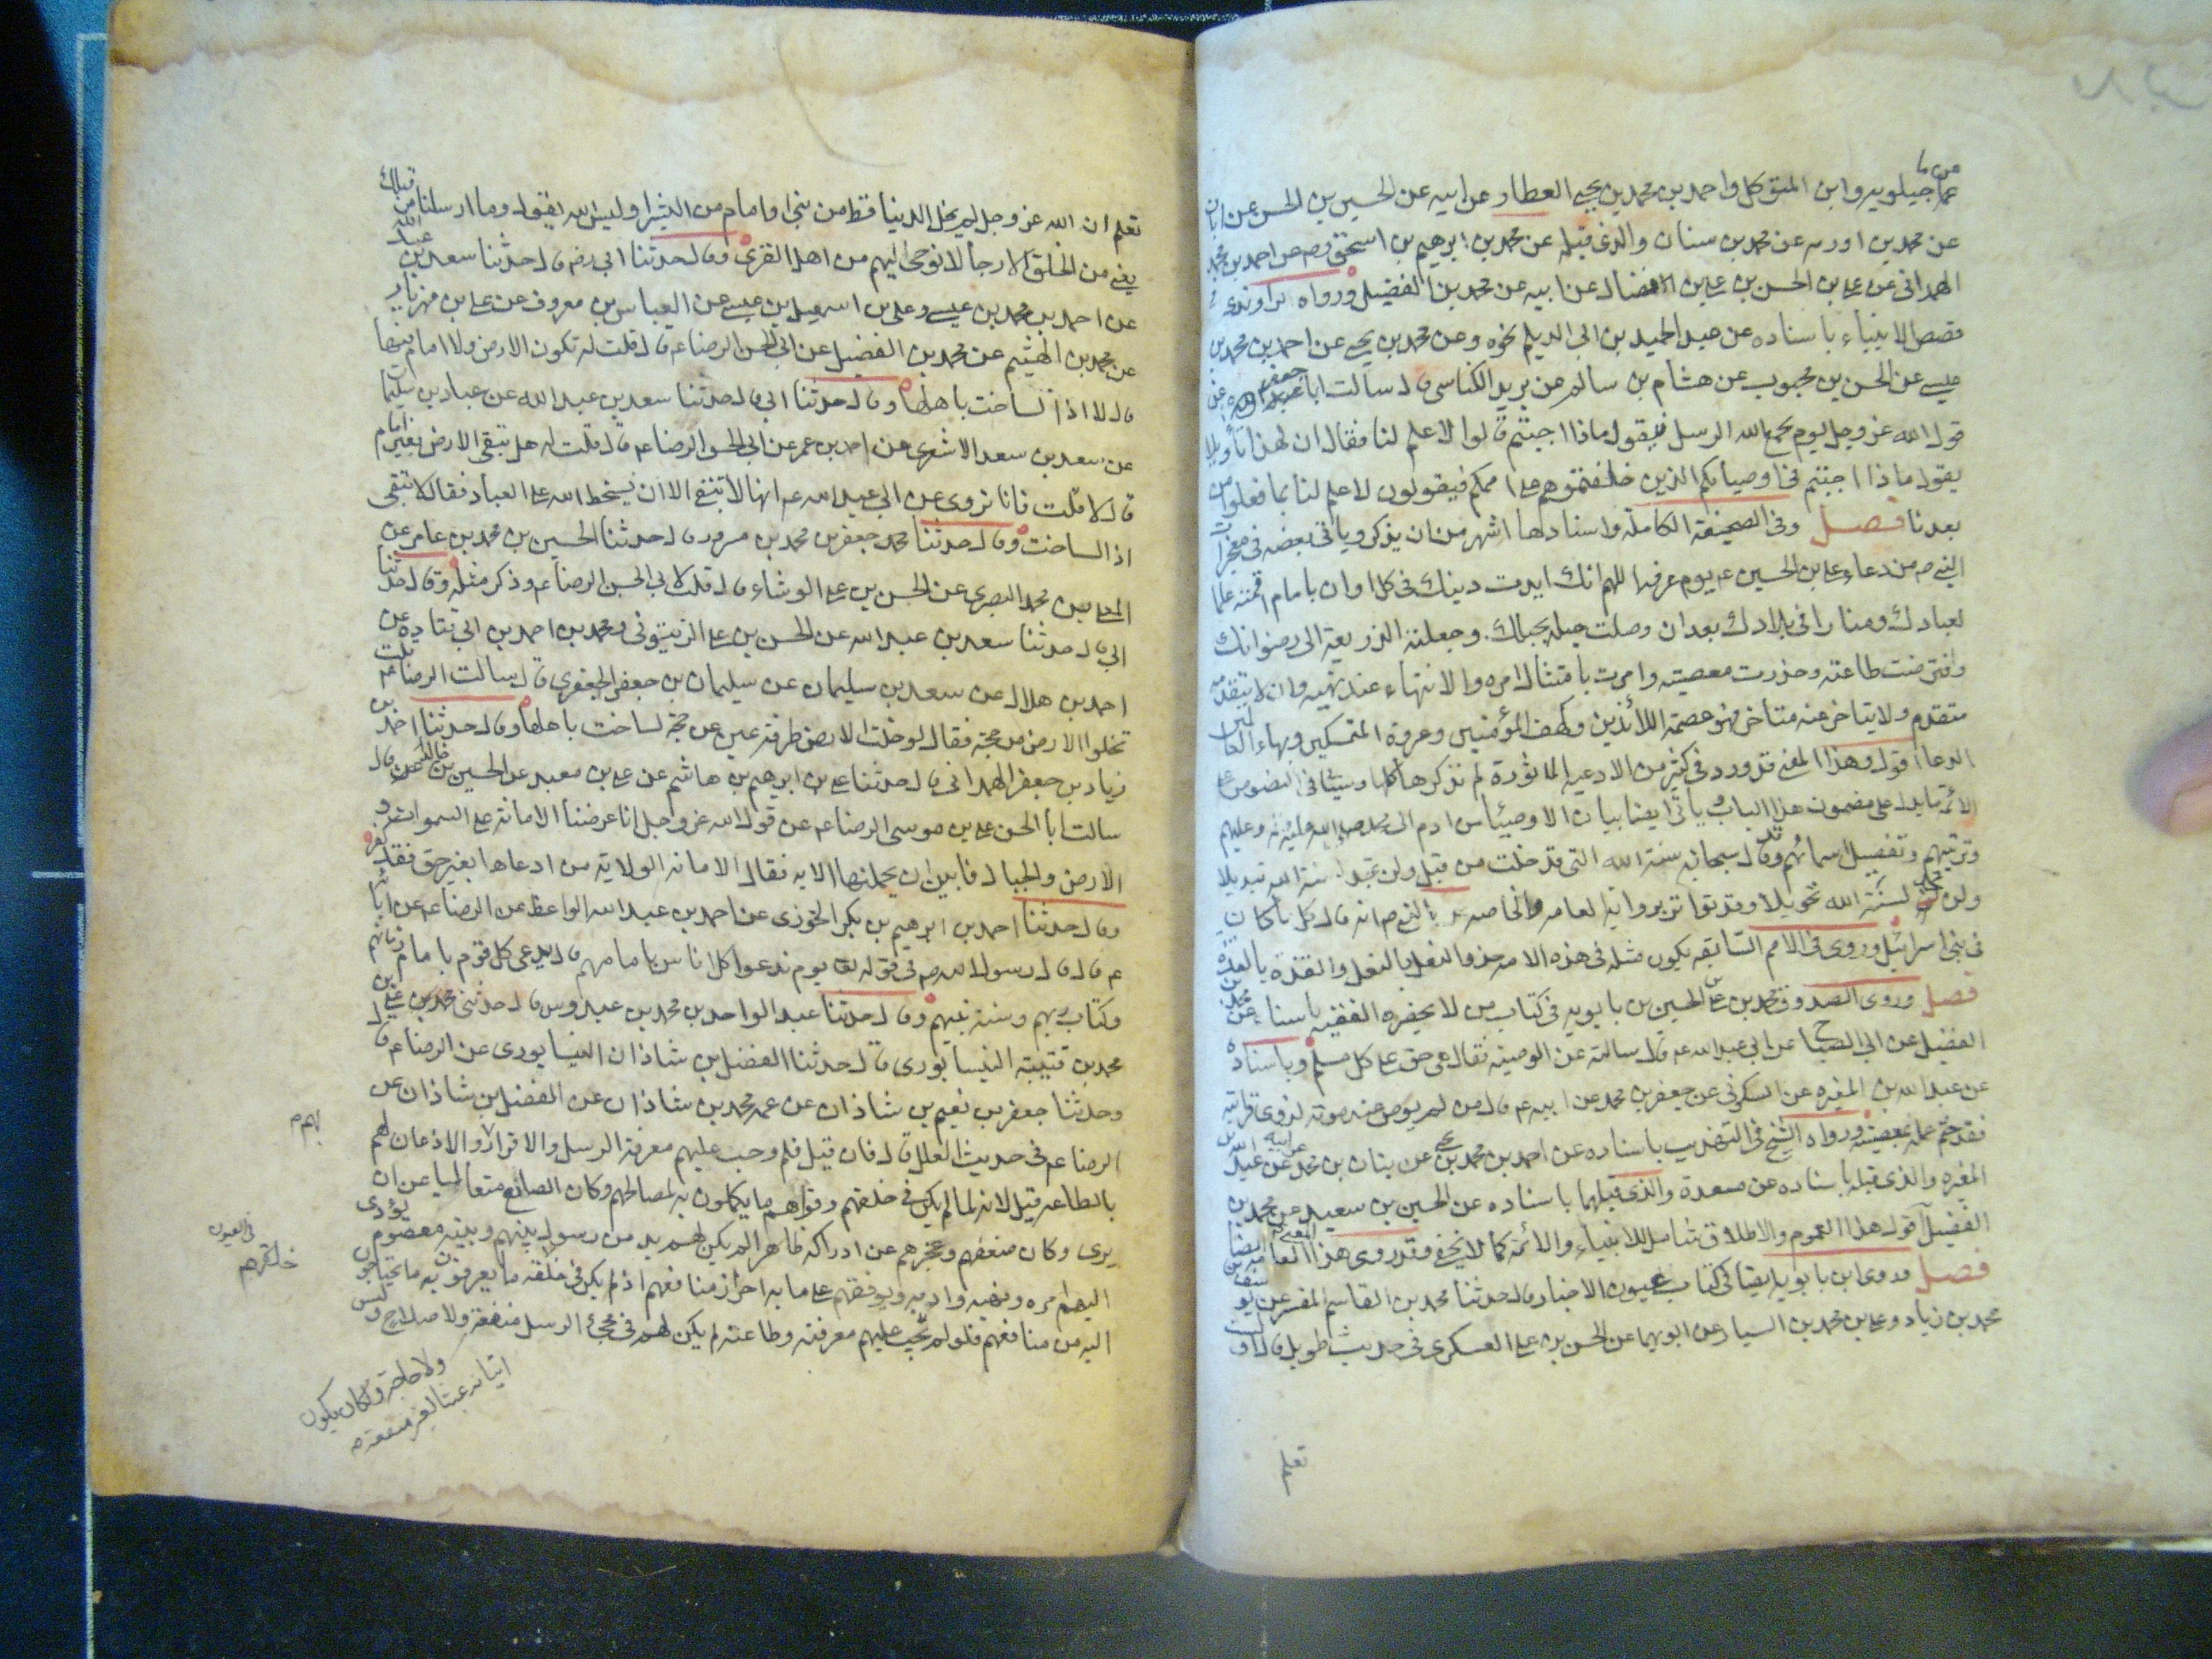 عن ما
عما جيلويه وابن المتوكل واحمد بن محمد بن يحيى العطار عن ابيه عن الحسين بن الحسن عن ابان
عن محمد بن اورمه عن محمد بن سنان والذى قبله عن محمد بن ابرهيم بن اسحق وعن احمد بن محمد
الهمدانى عن على بن الحسن بن على بن فضال عن ابيه عن محمد بن الفضيل ورواه الراوندى فى
قصص الانبياء باسناده عن عبد الحميد بن ابى الديلم نحوه وعن محمد بن يحيى عن احمد بن محمد بن
عيسى عن الحسن بن محبوب عن هشام بن سالم عن بريد الكناسى قال سالت ابا جعفر ع عن
قول الله عز وجل يوم يجمع الله الرسل فيقول ماذا اجبتم قالوا لا علم لنا فقال ان لهذا تأويلا
يقول ماذا اجبتم فى اوصيائكم الذين خلفتموهم على اممكم فيقولون لا علم لنا بما فعلوا من
بعدنا فصل وفى الصحيفة الكاملة واسنادها اشهر من ان يذكر وياتى بعضه فى معجزات
النبى ص من دعاء على بن الحسين ع يوم عرفه اللهم انك ايدت دينك فى كل اوان بامام اقمته علما
لعبادك ومنارا فى بلادك بعد ان وصلت حبله بحبلك وجعلته الذريعة الى رضوانك
وافترضت طاعته وحذرت معصيته وامرت بامتثال امره والانتهاء عند نهيه وان لا يتقدمه
متقدم ولا يتاخر عنه متاخر فهو عصمة اللائذين وكهف المؤمنين وعروة المتمسكين وبهاء العالمين
الدعا اقول وهذا المعنى قد ورد فى كثير من الادعيه الماثورة لم نذكرها كلها وسياتى فى النصوص على
الائمة ما يدل على مضمون هذا الباب وياتى ايضا بيان الاوصياء من ادم الى محمد صلى الله عليه واله وعليهم
وترتيبهم وتفصيل اسمائهم وقد قال سبحانه سنة الله التى قد خلت من قبل ولن تجد لسنة الله تبديلا
ولن تجد لسنة الله تحويلا وقد تواتر بروايه العامه والخاصه عن النبى ص انه قال كل ما كان
فى بنى اسرائيل وروى فى الامم السابقه يكون مثله فى هذه الامه حذو النعل بالنعل والقذة بالقذة
فصل وروى الصدوق محمد بن على بن الحسين بن بابويه فى كتاب من لا يحضره الفقيه باسناده عن محمد بن
الفضيل عن ابى الصباح عن ابى عبد الله ع قال سالته عن الوصيه فقال هى حق على كل مسلم وباسناده
عن عبد الله بن المغيره عن السكونى عن جعفر بن محمد عن ابيه ع قال من لم يوص عند موته لذوى قرابته
فقد ختم عمله بمعصيته ورواه الشيخ فى التهذيب باسناده عن احمد بن محمد بن يحيى عن بنان بن محمد عن ابيه عن عبد الله بن
المغيره والذى قبله باسناده عن مسعدة والذى قبلهما باسناده عن الحسين بن سعيد عن محمد بن
الفضيل اقول هذا العموم والاطلاق شامل للانبياء والائمة كما لا يخفى وقد روى هذا المعنى العامه ايضا
فصل وروى ابن بابويه ايضا فى كتاب عيون الاخبار قال حدثنا محمد بن القاسم المفسر عن يوسف بن
محمد بن زياد وعلى بن محمد بن السيار عن ابويهما عن الحسن بن على العسكرى فى حديث طويل قال اولست
تعلم
تعلم ان الله عز وجل لم يخل الدنيا قط من نبى او امام من البشر اوليس الله يقول وما ارسلنا من قبلك
يعنى من الخلق الا رجالا نوحى اليهم من اهل القرى وقال حدثنا ابى رض قال حدثنا سعد بن عبد الله
عن احمد بن محمد بن عيسى وعلى بن اسمعيل بن عيسى عن العباس بن معروف عن على بن مهزيار
عن محمد بن الهيثم عن محمد بن الفضيل عن ابى الحسن الرضا ع قال قلت له تكون الارض ولا امام فيها
قال لا اذا لساخت باهلها وقال حدثنا ابى قال حدثنا سعد بن عبد الله عن عباد بن سليمان
عن سعد بن سعد الاشعرى عن احمد بن عمر عن ابى الحسن الرضا ع قال قلت له هل تبقى الارض بغير امام
قال لا قلت فانا نروى عن ابى عبد الله ع انها لا تبقى الا ان يسخط الله على العباد فقال لا تبقى
اذا لساخت وقال حدثنا محمد جعفر بن محمد بن مسرور قال حدثنا الحسين بن محمد بن عامر عن
المعلى بن محمد البصرى عن الحسن بن على الوشاء قال قلت لابى الحسن الرضا ع وذكر مثله وقال حدثنا
ابى قال حدثنا سعد بن عبد الله عن الحسن بن على الزيتونى ومحمد بن احمد بن ابى قتاده عن
احمد بن هلال عن سعد بن سليمان عن سليمان بن جعفر الجعفرى قال سالت الرضا ع قلت
تخلوا الارض من حجة فقال لو خلت الارض طرفة عين عن حجة لساخت باهلها وقال حدثنا احمد بن
زياد بن جعفر الهمدانى قال حدثنا على بن ابرهيم بن هاشم عن على بن معبد عن الحسين بن خالد قال
سالت ابا الحسن على بن موسى الرضا ع عن قول الله عز وجل انا عرضنا الامانة على السموات و
الارض والجبال فابين ان يحملنها الايه فقال الامانه الولاية من ادعاها بغير حق فقد كفر
وقال حدثنا احمد بن ابرهيم بن بكر الخوزى عن احمد بن عبد الله الواعظ عن الرضا ع عن ابائه
ع قال قال رسول الله ص فى قوله تعالى يوم ندعوا كل اناس بامامهم قال يدعى كل قوم بامام زمانهم
وكتاب ربهم وسنة نبيهم وقال حدثنا عبد الواحد بن محمد بن عبدوس قال حدثنى محمد بن على بن
محمد بن قتيبة النيسابورى قال حدثنا الفضل بن شاذان النيسابورى عن الرضا ع قال
وحدثنا جعفر بن نعيم بن شاذان عن عمه محمد بن شاذان عن الفضل بن شاذان عن
الرضا ع فى حديث العلل قال فان قيل فلم وجب عليهم معرفة الرسل والاقرار والاذعان لهم
بهم
بالطاعه قيل لانه لما لم يكن فى خلقهم وقواهم ما يكملون به لمصالحهم وكان الصانع متعاليا عن ان
يرى وكان ضعفهم وعجزهم عن ادراكه ظاهرا لم يكن لهم بد من رسول بينهم وبينه معصوم يؤدى
اليهم امره ونهيه وادبه ويوقفهم على ما به احراز منافعهم اذ لم يكن فى خلقه ما يعرفون به ما يحتاجون
فى العيون
خلقهم
اليه من منافعهم فلو لم تجب عليهم معرفته وطاعته لم يكن لهم فى مجئ الرسل منفعة ولا صلاح وليس
ولا حاجة ولكان يكون
اتيانه عبثا لغير منفعة